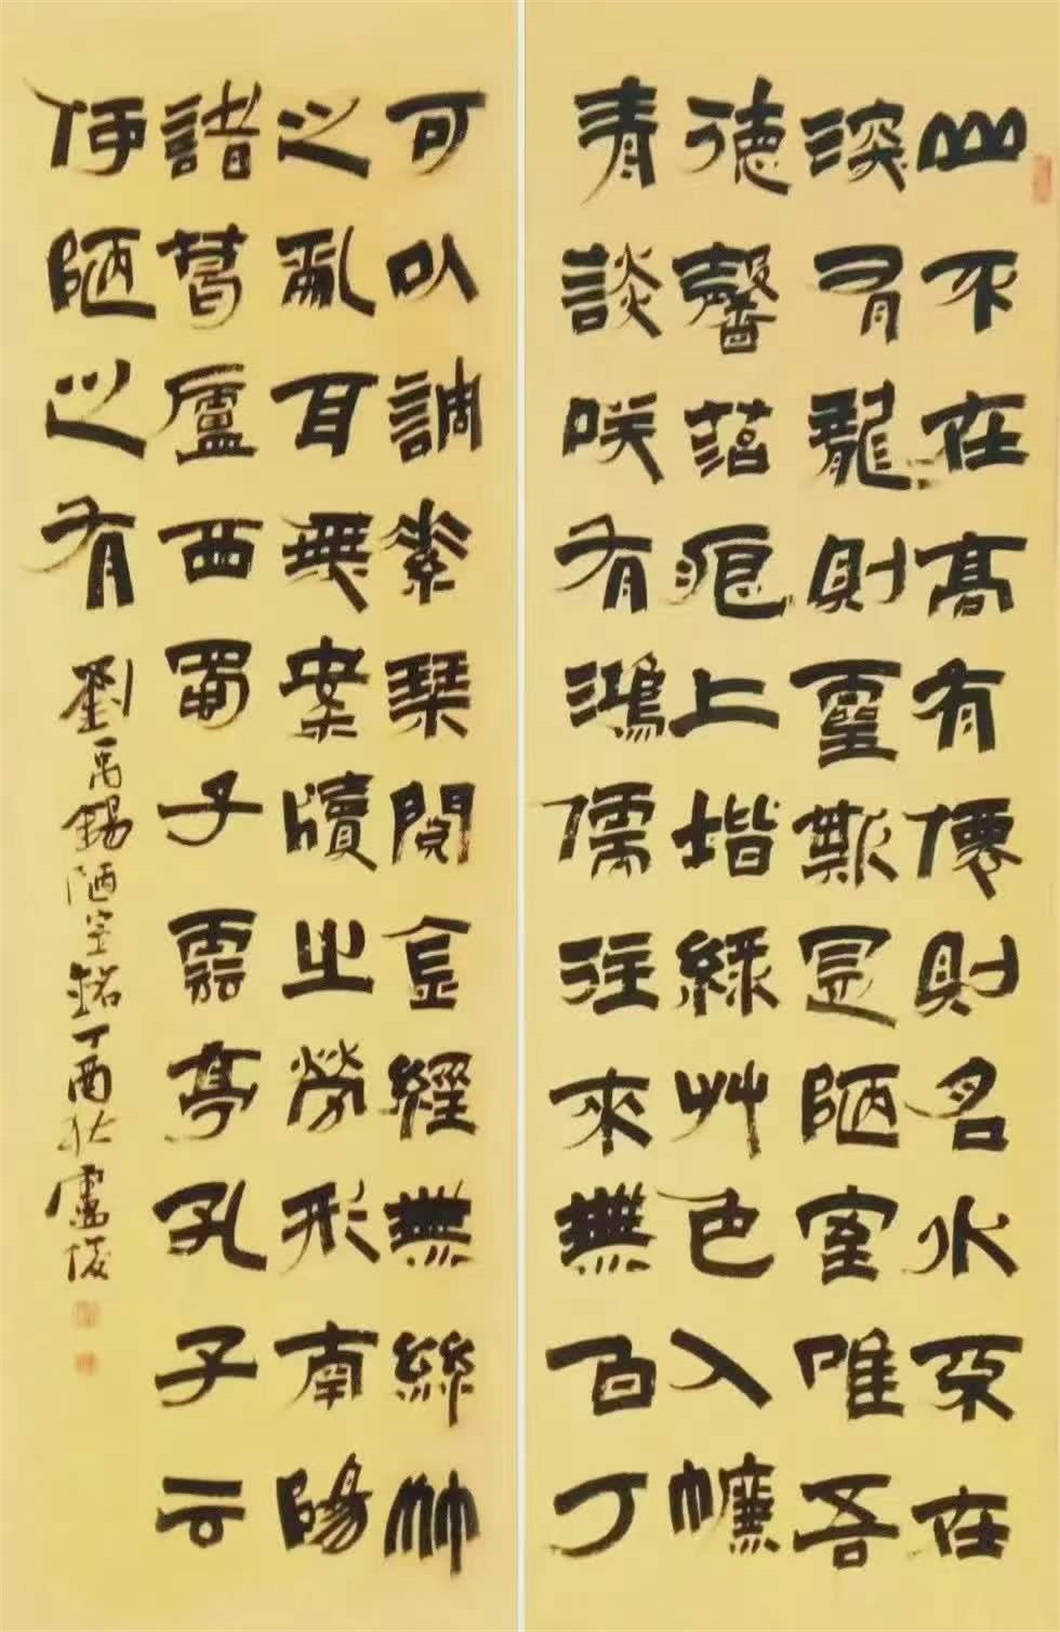 山不在高有僊則名水不在
深有龍則靈斯是陋室唯吾
德馨苔痕上堦綠艸色入㡘
青談咲有鴻儒往來無白丁
可以調素琴閱金經無絲竹
之亂耳無案牘之勞形南陽
諸葛廬西蜀子雲亭孔子云
何陋之有
劉禹錫陋室銘丁酉秋盧俊